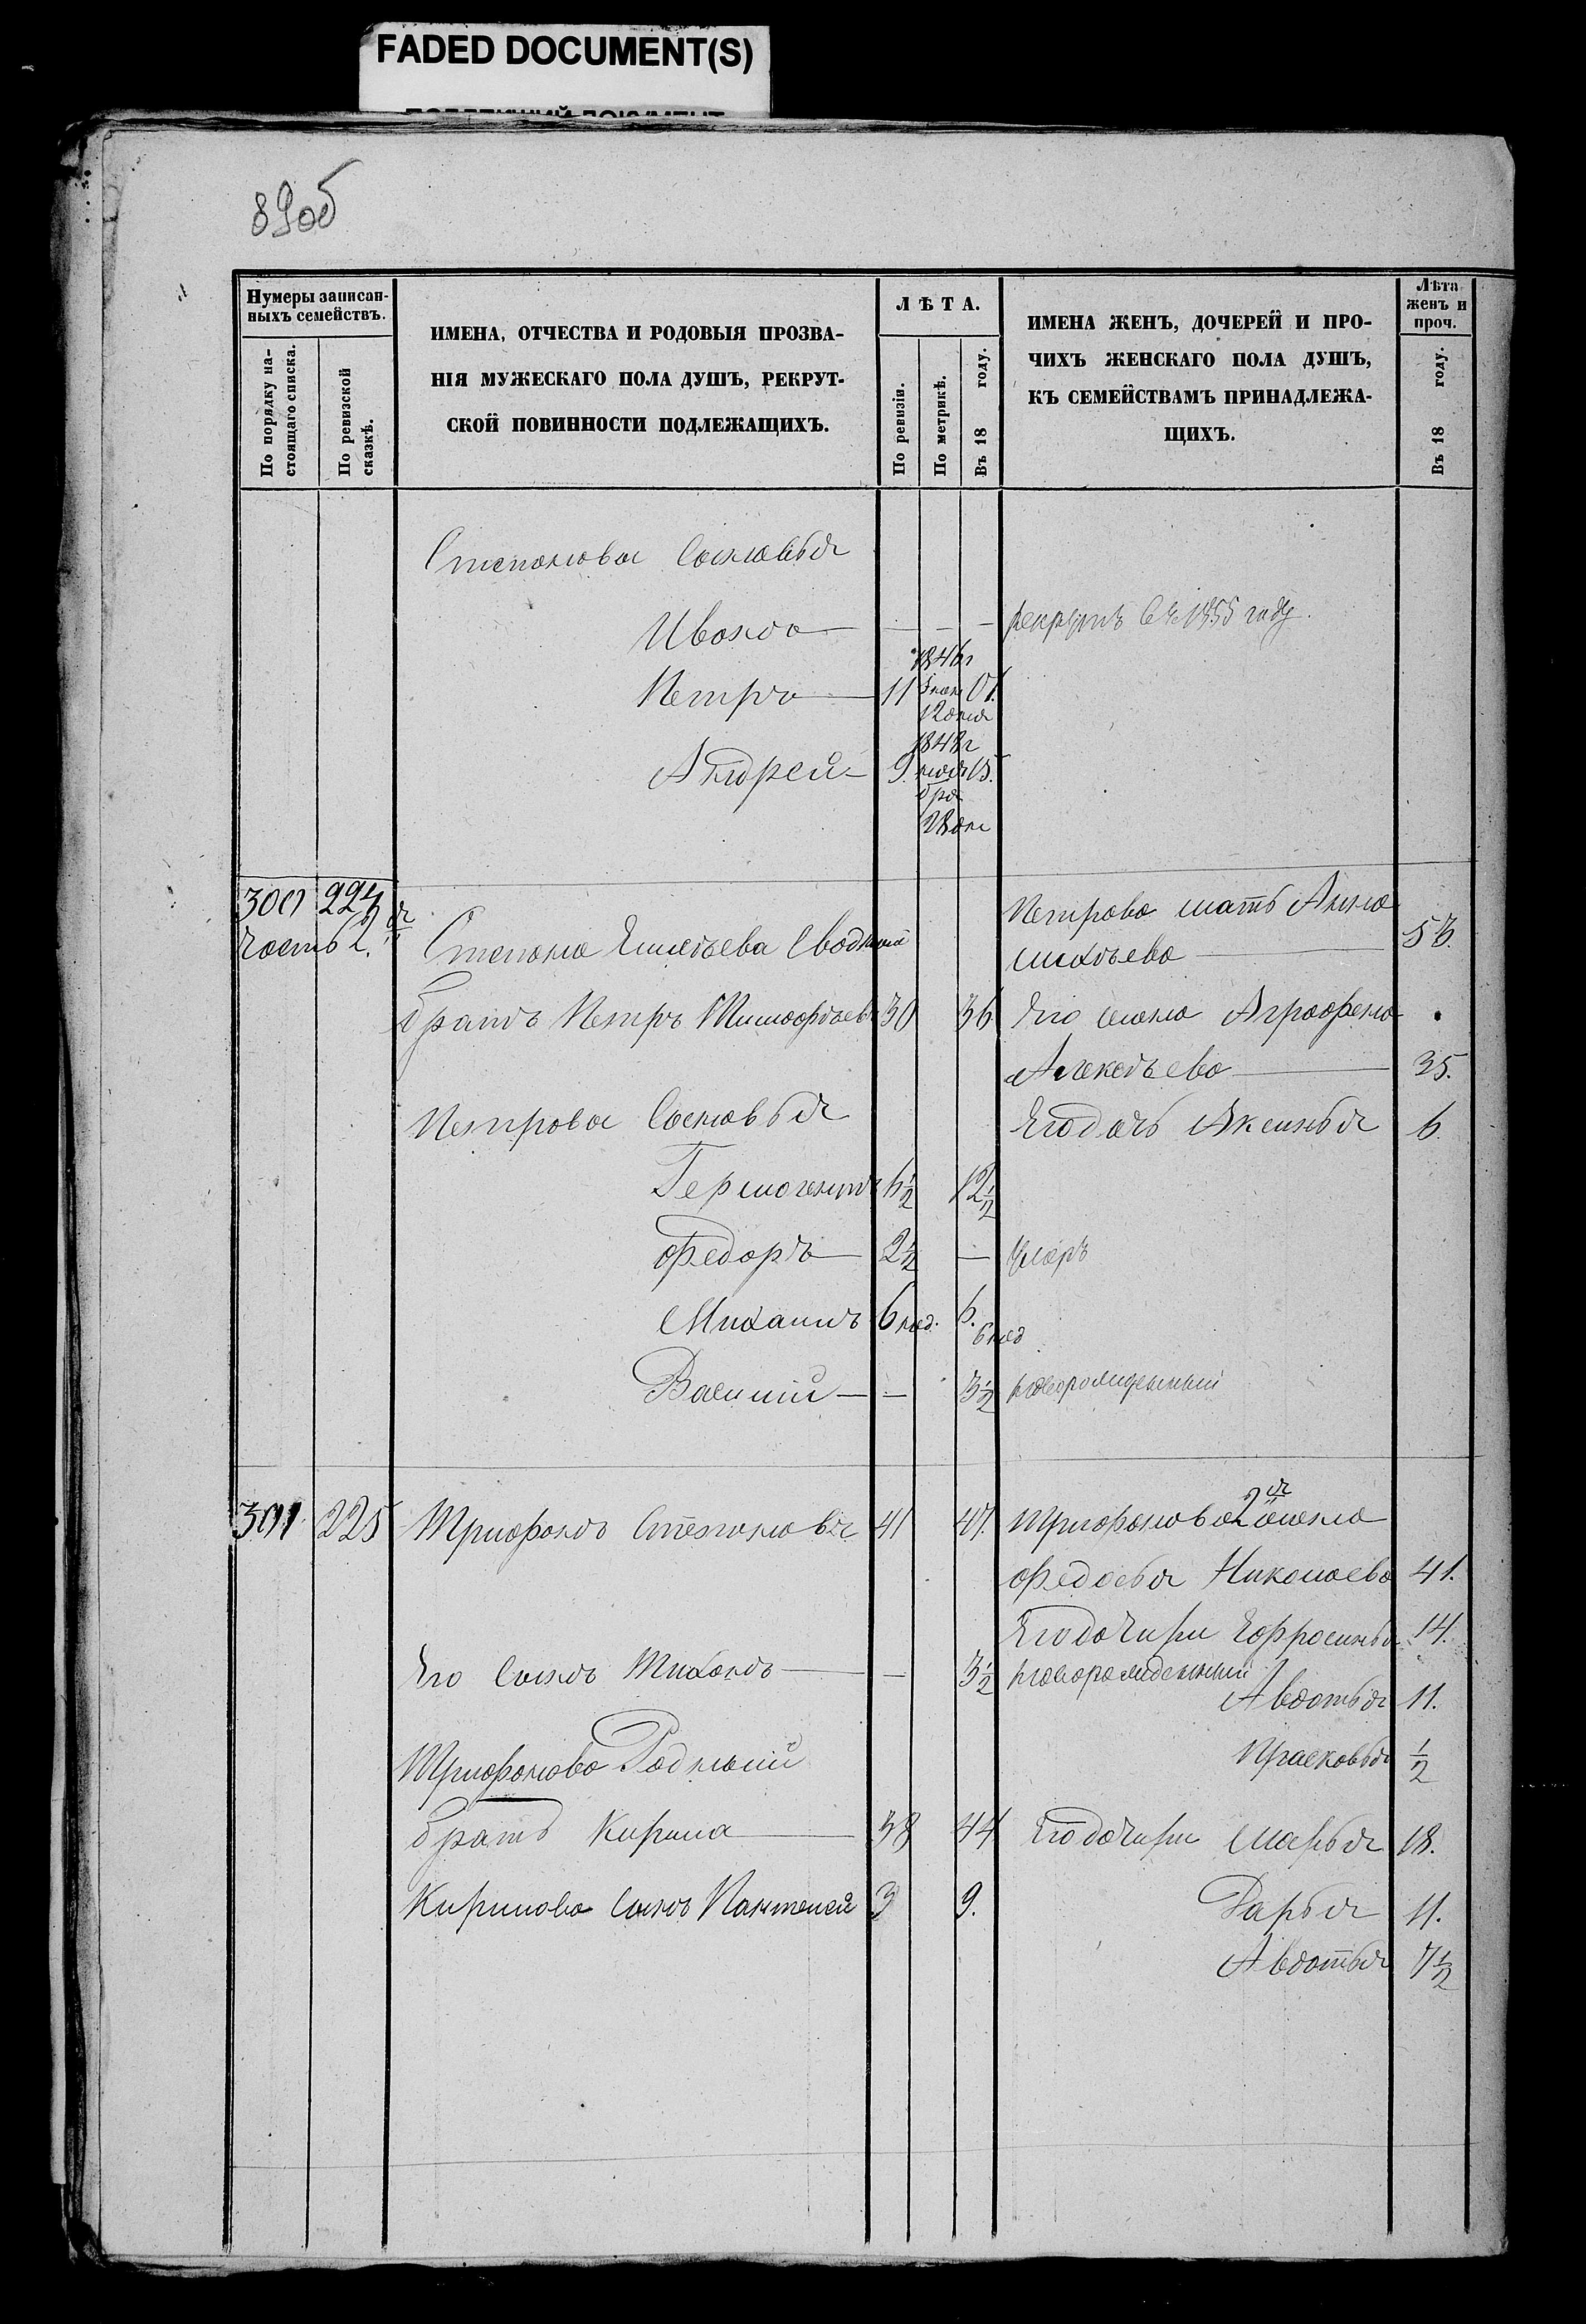 FADED DOCUMENT(S)
89об
Нумеры записан-
ныхъ семействъ.
По порядку на-
стоящаго списка.
По ревизской
сказкѣ.
ИМЕНА, ОТЧЕСТВА И РОДОВЫЯ ПРОЗВА-
НІЯ МУЖЕСКАГО ПОЛА ДУШЪ, РЕКРУТ-
СКОЙ ПОВИННОСТИ ПОДЛЕЖАЩИХЪ.
ЛѢТА.
По ревизіи.
По метрикѣ.
Въ 18 году.
ИМЕНА ЖЕНЪ, ДОЧЕРЕЙ И ПРО-
ЧИХЪ ЖЕНСКАГО ПОЛА ДУШЪ,
КЪ СЕМЕЙСТВАМЪ ПРИНАДЛЕЖА-
ЩИХЪ.
Лѣта
женъ и
проч.
Въ 18 году.
Степановы Сыновья
Иванъ — — — рекрутъ въ 1855 году.
1846г
Петръ 11 17.
12 дня
1848г
Андрей 9 15.
28 дня
300 224 Петрова мать Анна
часть 2я Степана Сводный
53
брать Петръ Тимофѣевъ 30 36 Его жена Аграфена
Алексѣева 35.
Петровы Сыновья Его дочь Аксинья 6
Гермогенъ 6½ 12½
Федоръ 2½ — умеръ
Михаилъ 6 нед. 6. 6 нед
Василий — 3½ новорожденный
301 225 Трифонъ Степановъ 41 47. Трифонова 2я жена
Федосья Николаева 41.
Его дочери Ефросинья 14.
Его Сынъ Тихонъ — 3½ новорожденный
Авдотья 11.
Трифонова Родный Прасковья ½
брать Кирила 38 44 Его дочери Марья 18.
Кирилова Сынъ Пантелей 3 9. Дарья 11.
Авдотья 7½